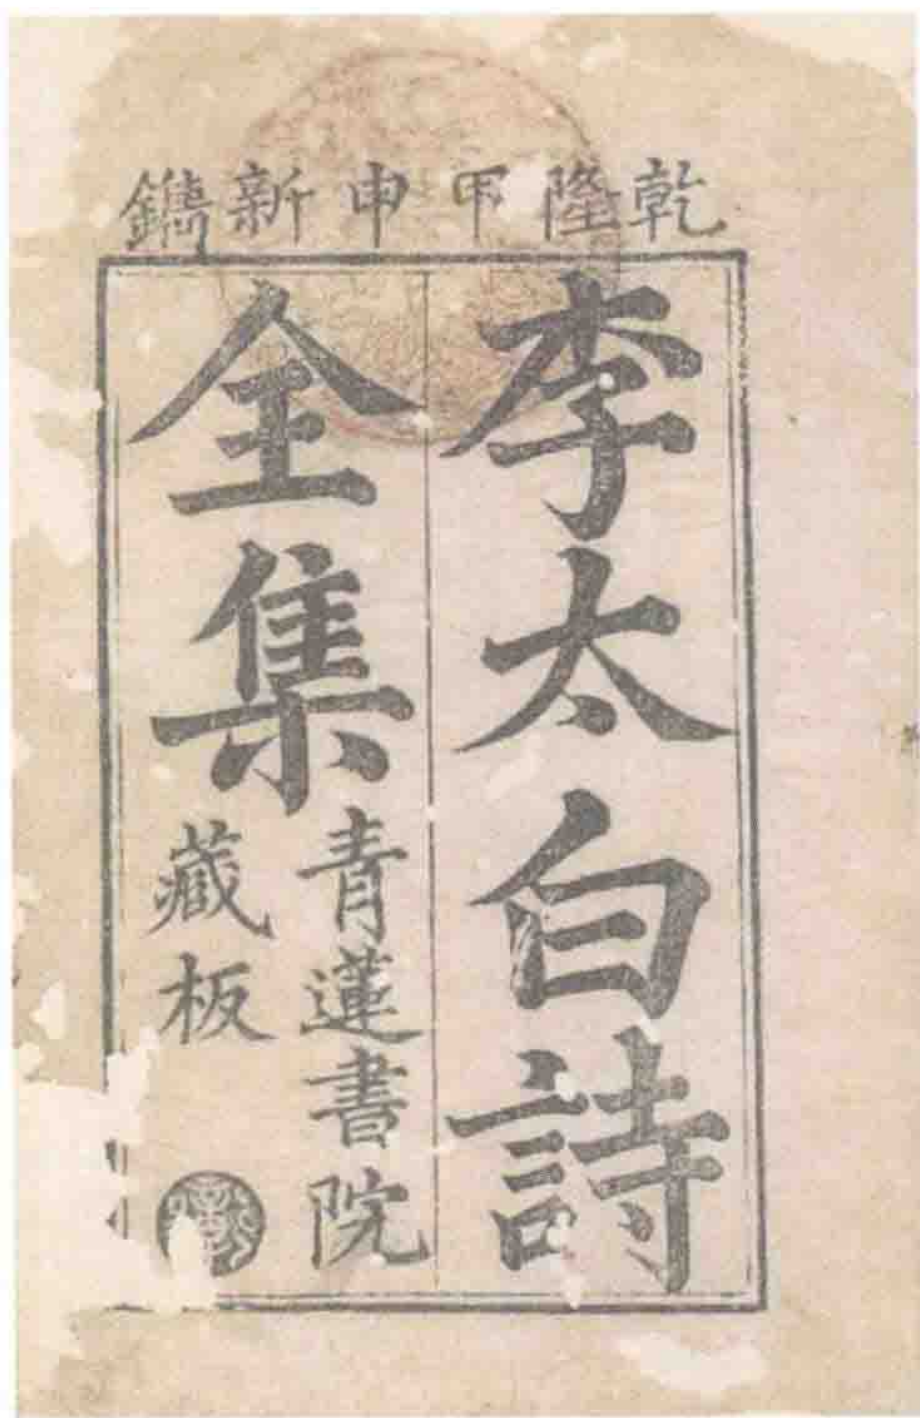 乾隆甲申新鐫
李太白詩
全集
青蓮書院
藏板